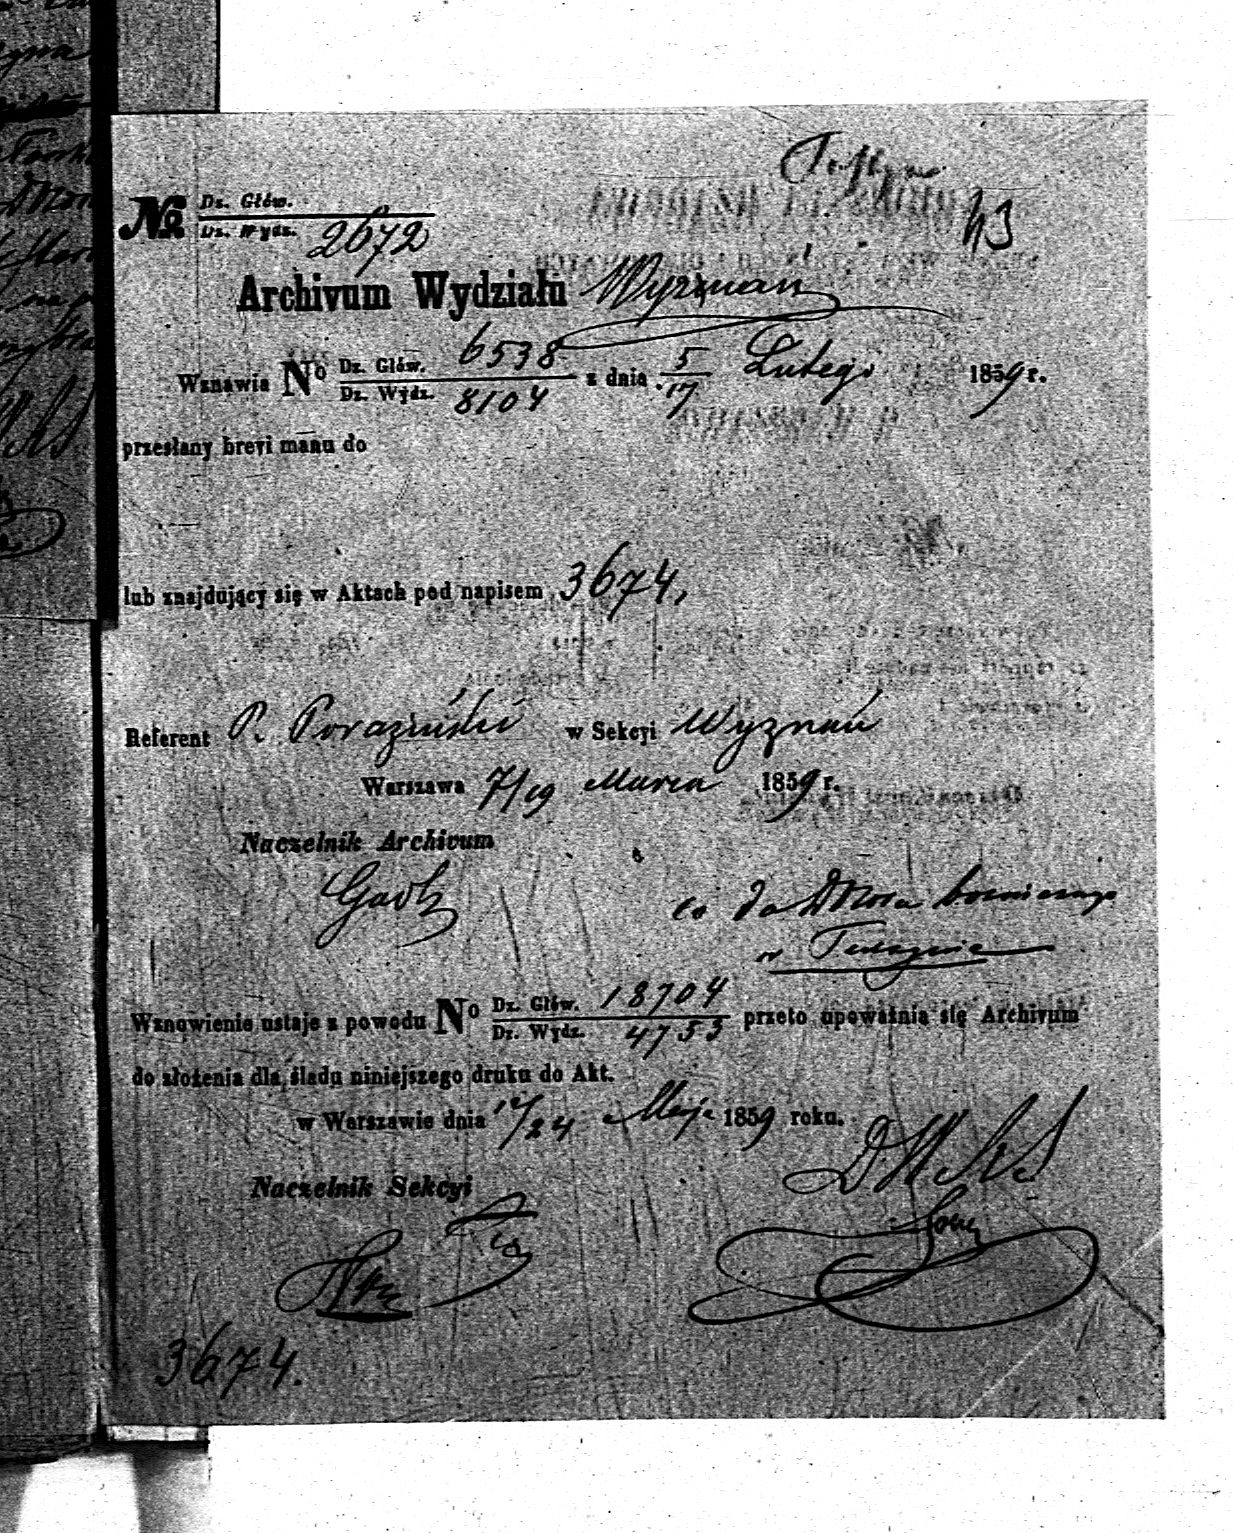 43
№ Dz. Głów.
Dz. Wydz. 2672
Archivum Wydziału Wyznań
Wznawia No Dz. Głów. 6538 z dnia 5 Lutego 1859 r.
Dz. Wydz. 8104 17
przesłany brevi manu do
lub znajdujący się w Aktach pod napisem 3674,
Referent P. Poraziński w Sekcyi Wyznań
Warszawa 7/19 Marca 1859 r.
Naczelnik Archivum
co do Dozoru bożniczego
w
Wznowienie ustaje z powodu No Dz. Głów. 18704 przeto upoważnia się Archivum
Dz. Wydz. 4753
do złożenia dla śladu niniejszego druku do Akt.
w Warszawie dnia 12/24 Maja 1859 roku.
Naczelnik Sekcyi
3674.